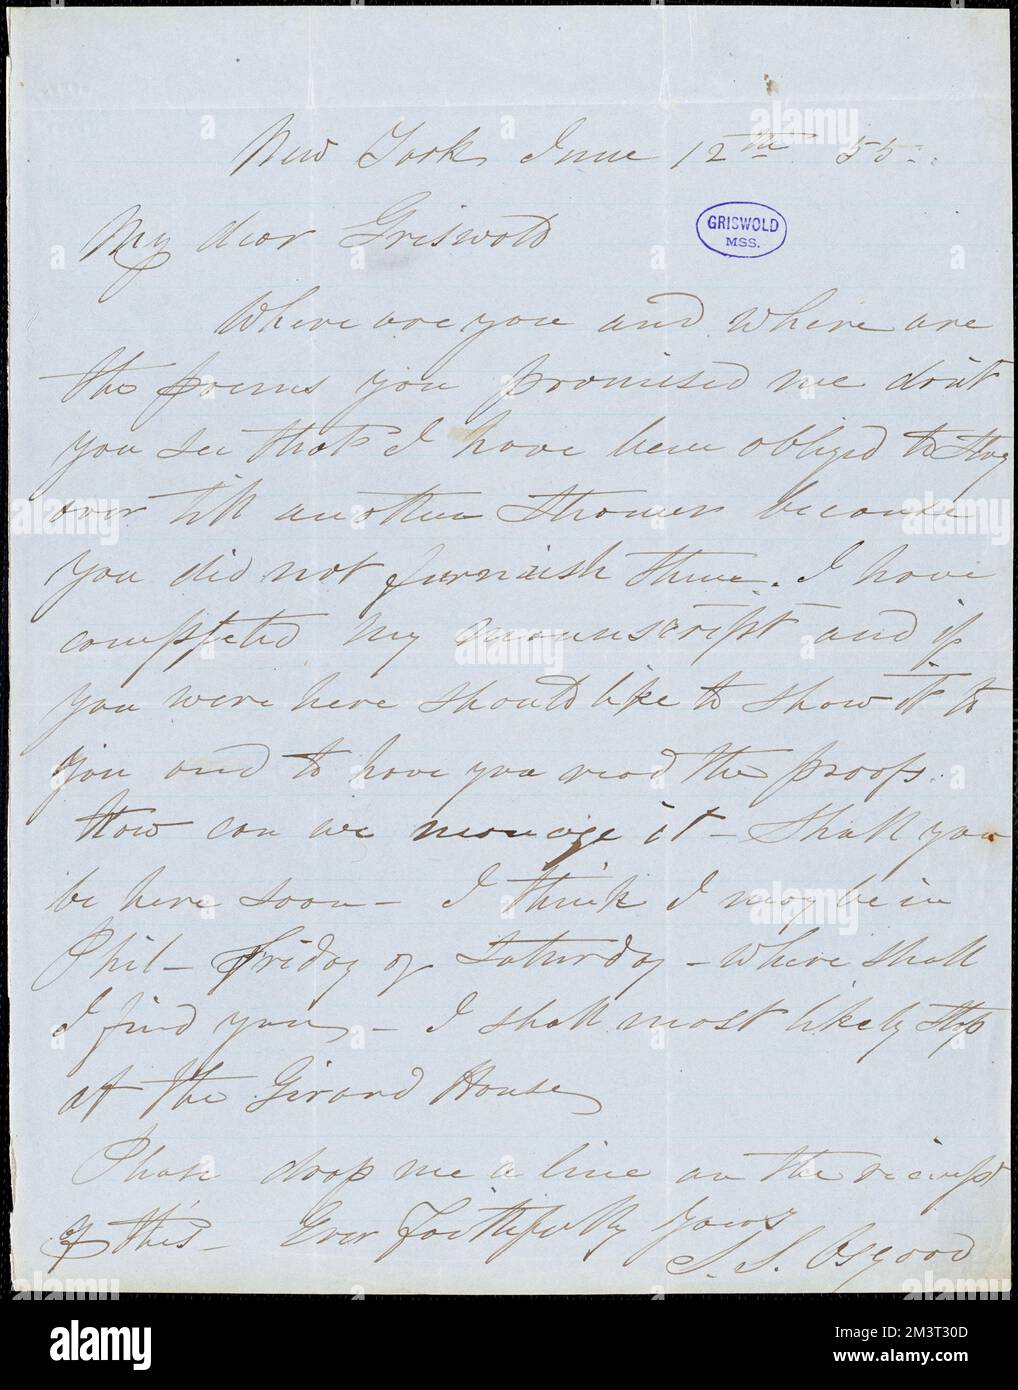 New York June 12th 55.
My dear Griswold
GRISWOLD
MSS.
Where are you and where are
the poems you promised me don't
you see that I have been obliged to stay
over till another Steamer because
you did not furnish them. I have
completed my manuscript and if
you were here should like to show it to
you and to have you read the proofs.
How can we manage it - Shall you
be here soon - I think I may be in
Phil - Friday or Saturday - where shall
I find you - I shall most likely stop
at the Girard House
Please drop me a line on the receipt
of this - Ever Faithfully Yours
S. S. Osgood
alamy
Image ID: 2M3T30D
www.alamy.com